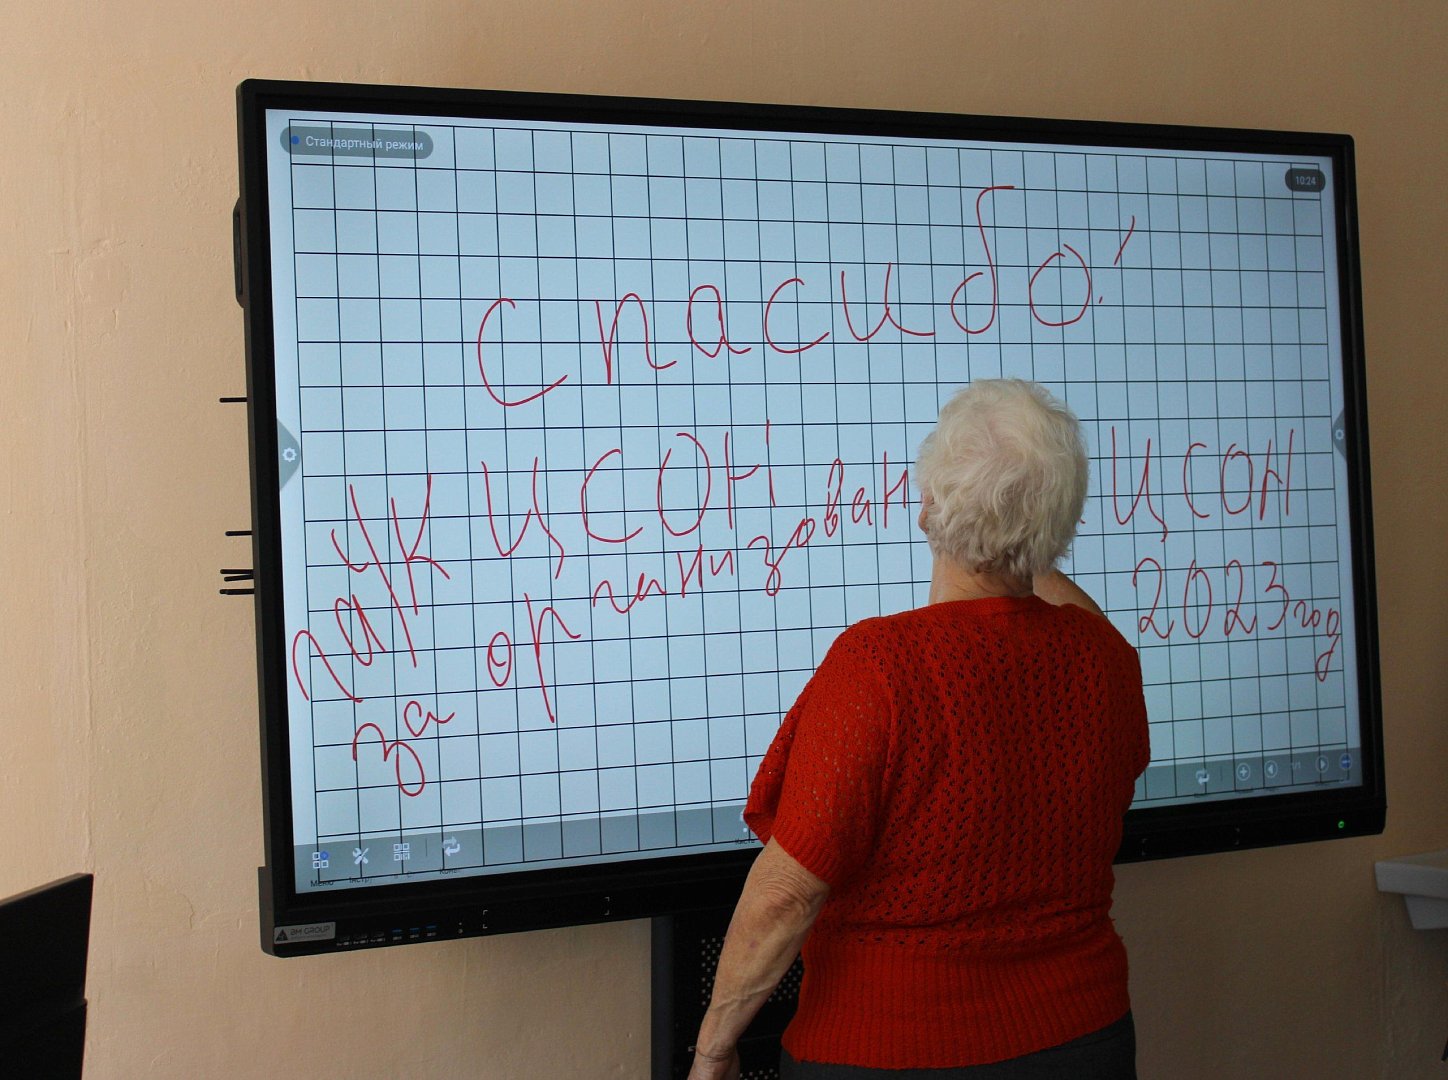 Стандартный режим
10:24
Спасибо!
ЦСОН ЦСОН
за организован
2023 год
Меню
GROUP